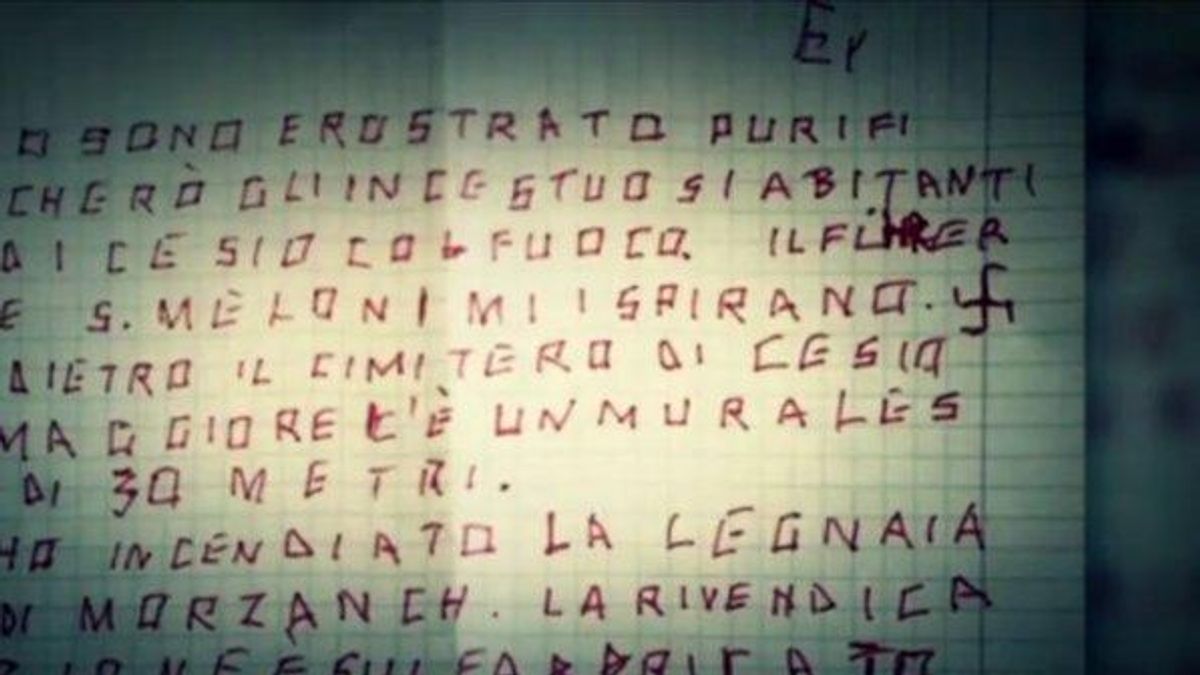 Er
O SONO EROSTRATO PURIFI
CHERÒ GLI INCESTUOSI ABITANTI
DI CESIO COL FUOCO. IL FÜHRER
E S. MELONI MI ISPIRANO.
DIETRO IL CIMITERO DI CESIO
MAGGIORE C'È UN MURALES
DI 30 METRI.
HO INCENDIATO LA LEGNAIA
DI MORZANCH. LA RIVENDICA
ZIONE È SUL FABBRICATO